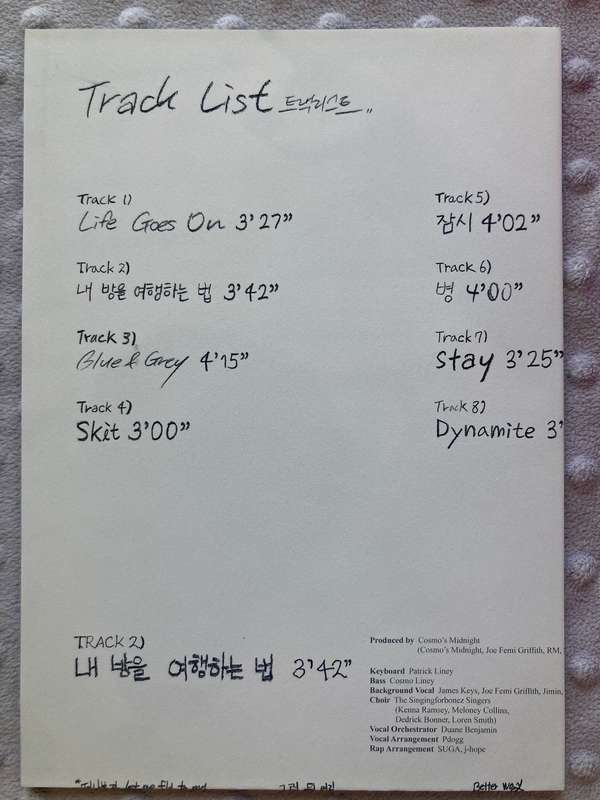 Track List 트랙리스트
Track 1)
Life Goes On 3'27"
Track 2)
내 방을 여행하는 법 3'42"
Track 3)
Blue & Grey 4'15"
Track 4)
Skit 3'00"
Track 5)
잠시 4'02"
Track 6)
병 4'00"
Track 7)
stay 3'25"
Track 8)
Dynamite 3'
TRACK 2)
내 방을 여행하는 법 3'42"
Produced by Cosmo's Midnight
(Cosmo's Midnight, Joe Femi Griffith, RM,
Keyboard Patrick Liney
Bass Cosmo Liney
Background Vocal James Keys, Joe Femi Griffith, Jimin,
Choir The Singingforbonez Singers
(Kenna Ramsey, Meloney Collins,
Dedrick Bonner, Loren Smith)
Vocal Orchestrator Duane Benjamin
Vocal Arrangement Pdogg
Rap Arrangement SUGA, j-hope
Better way